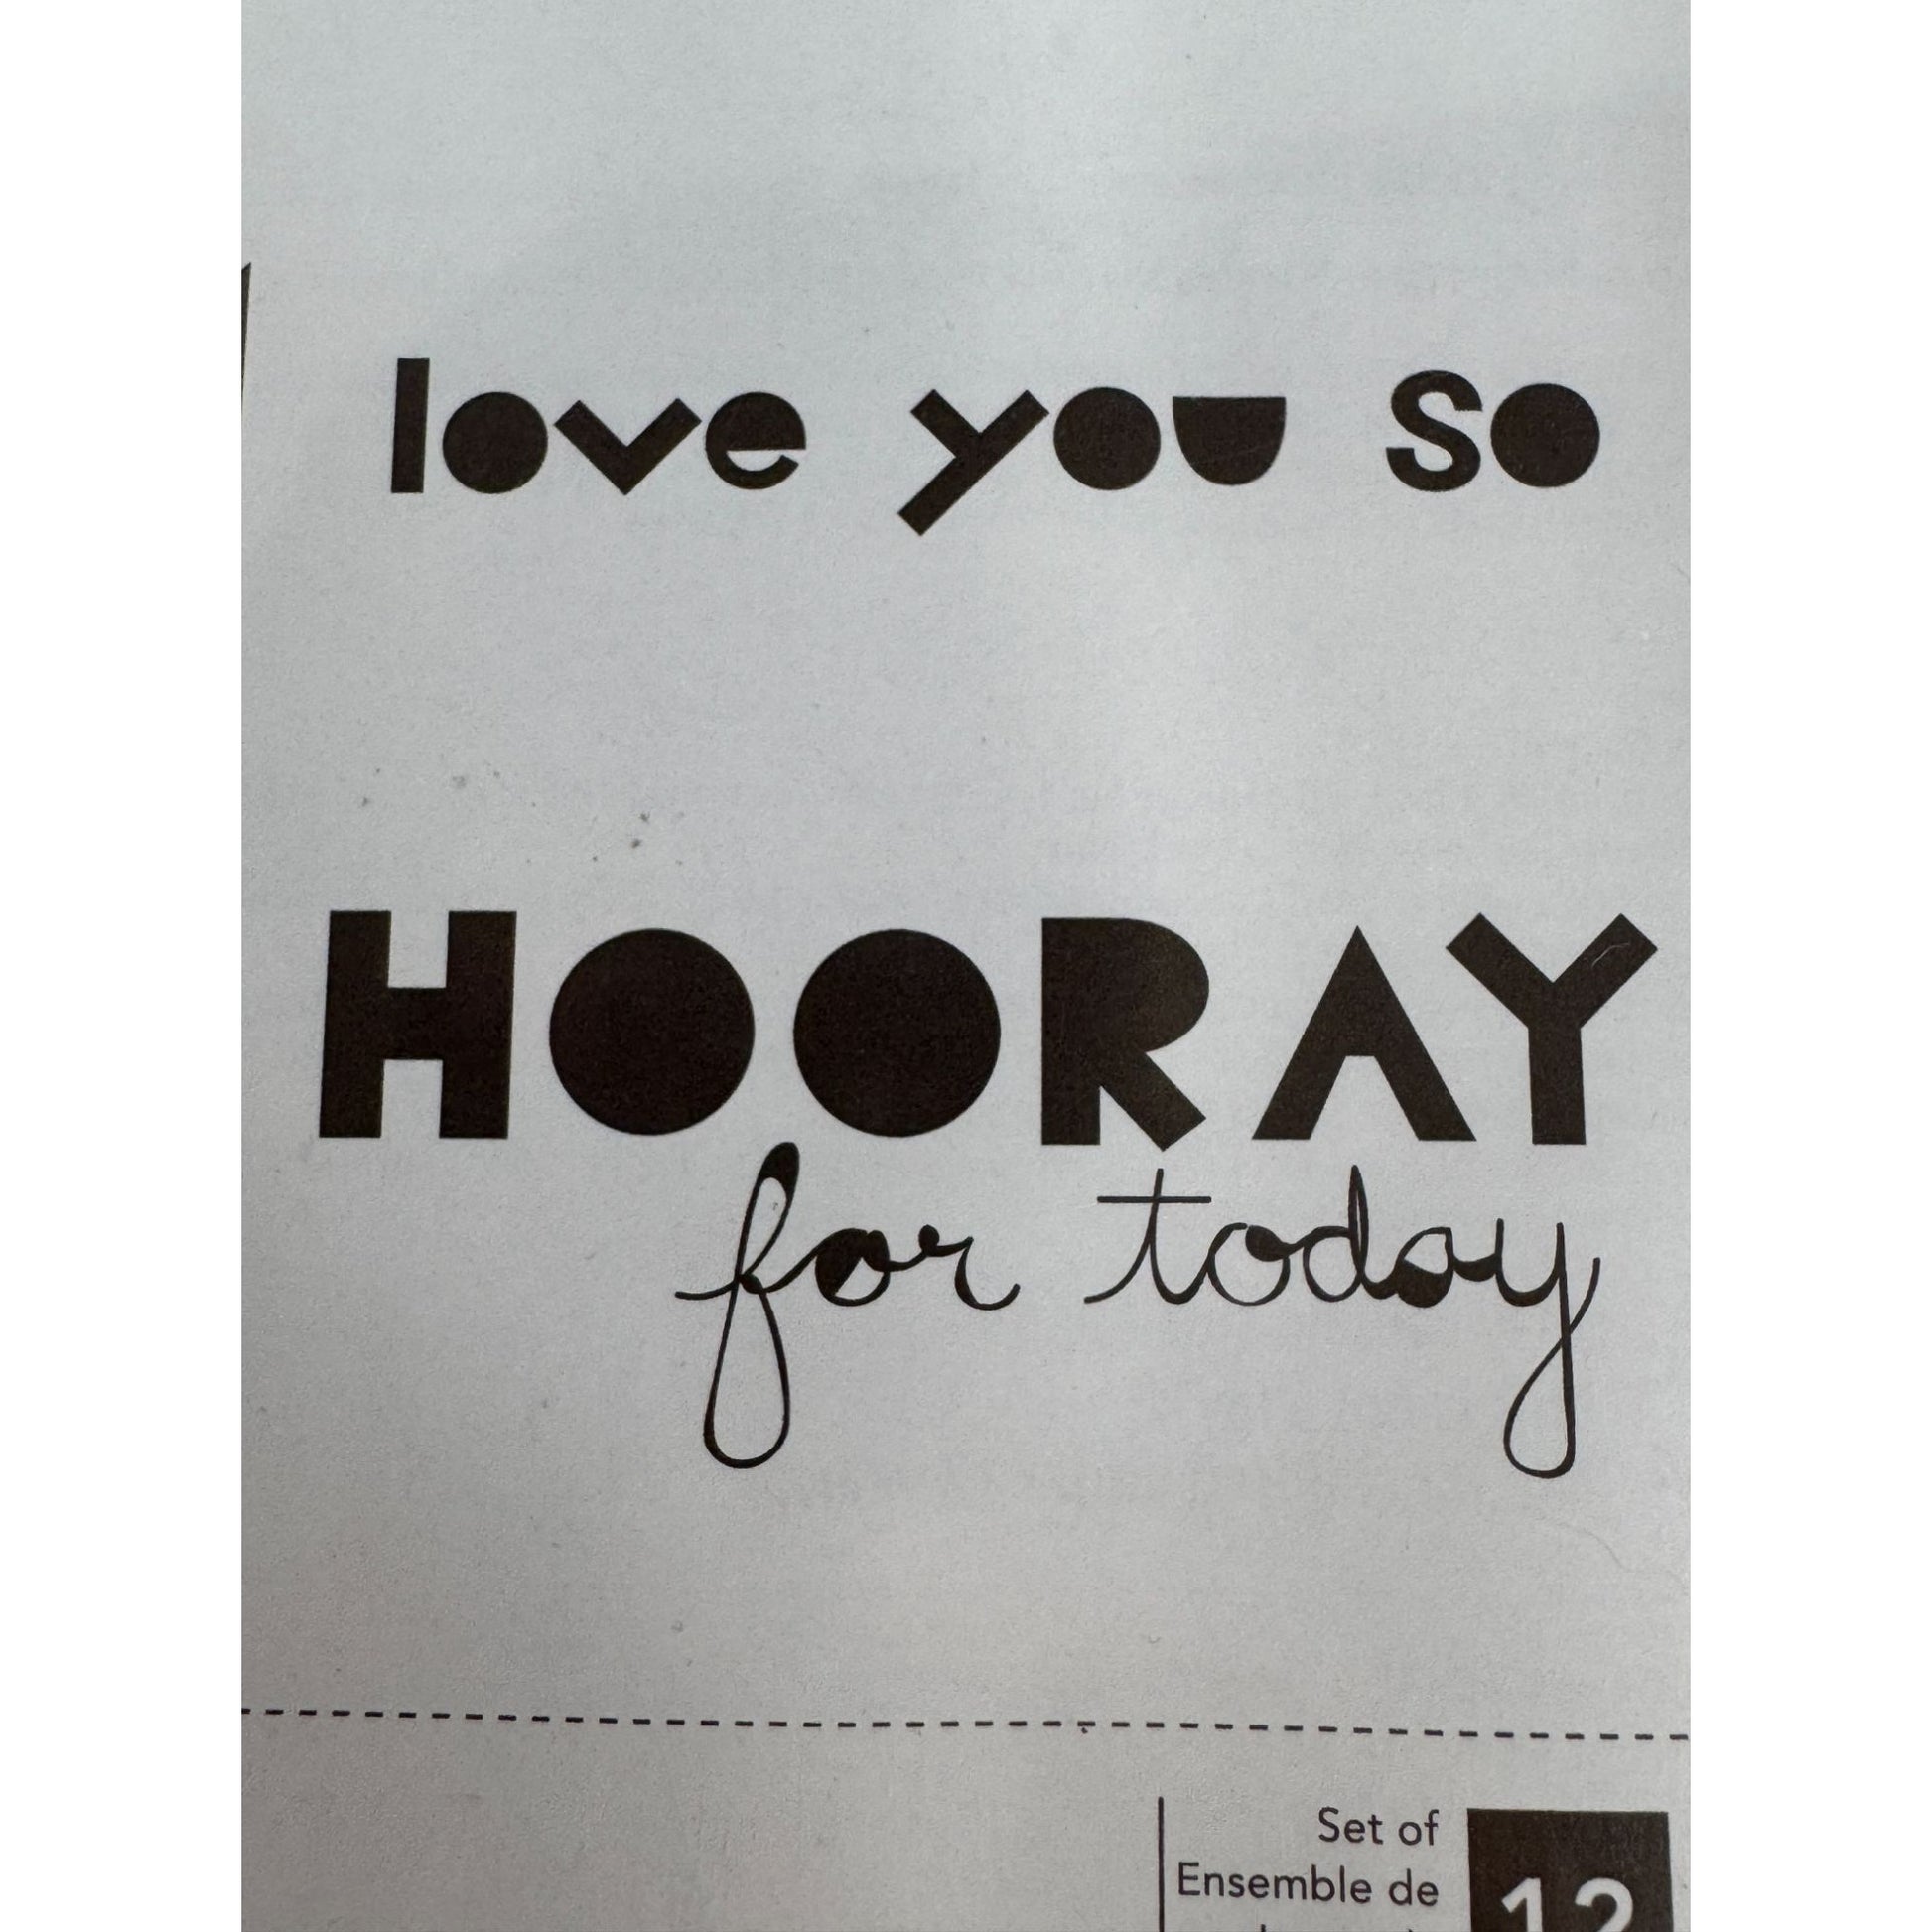 love you so
HOORAY
for today
Set of
Ensemble de
12